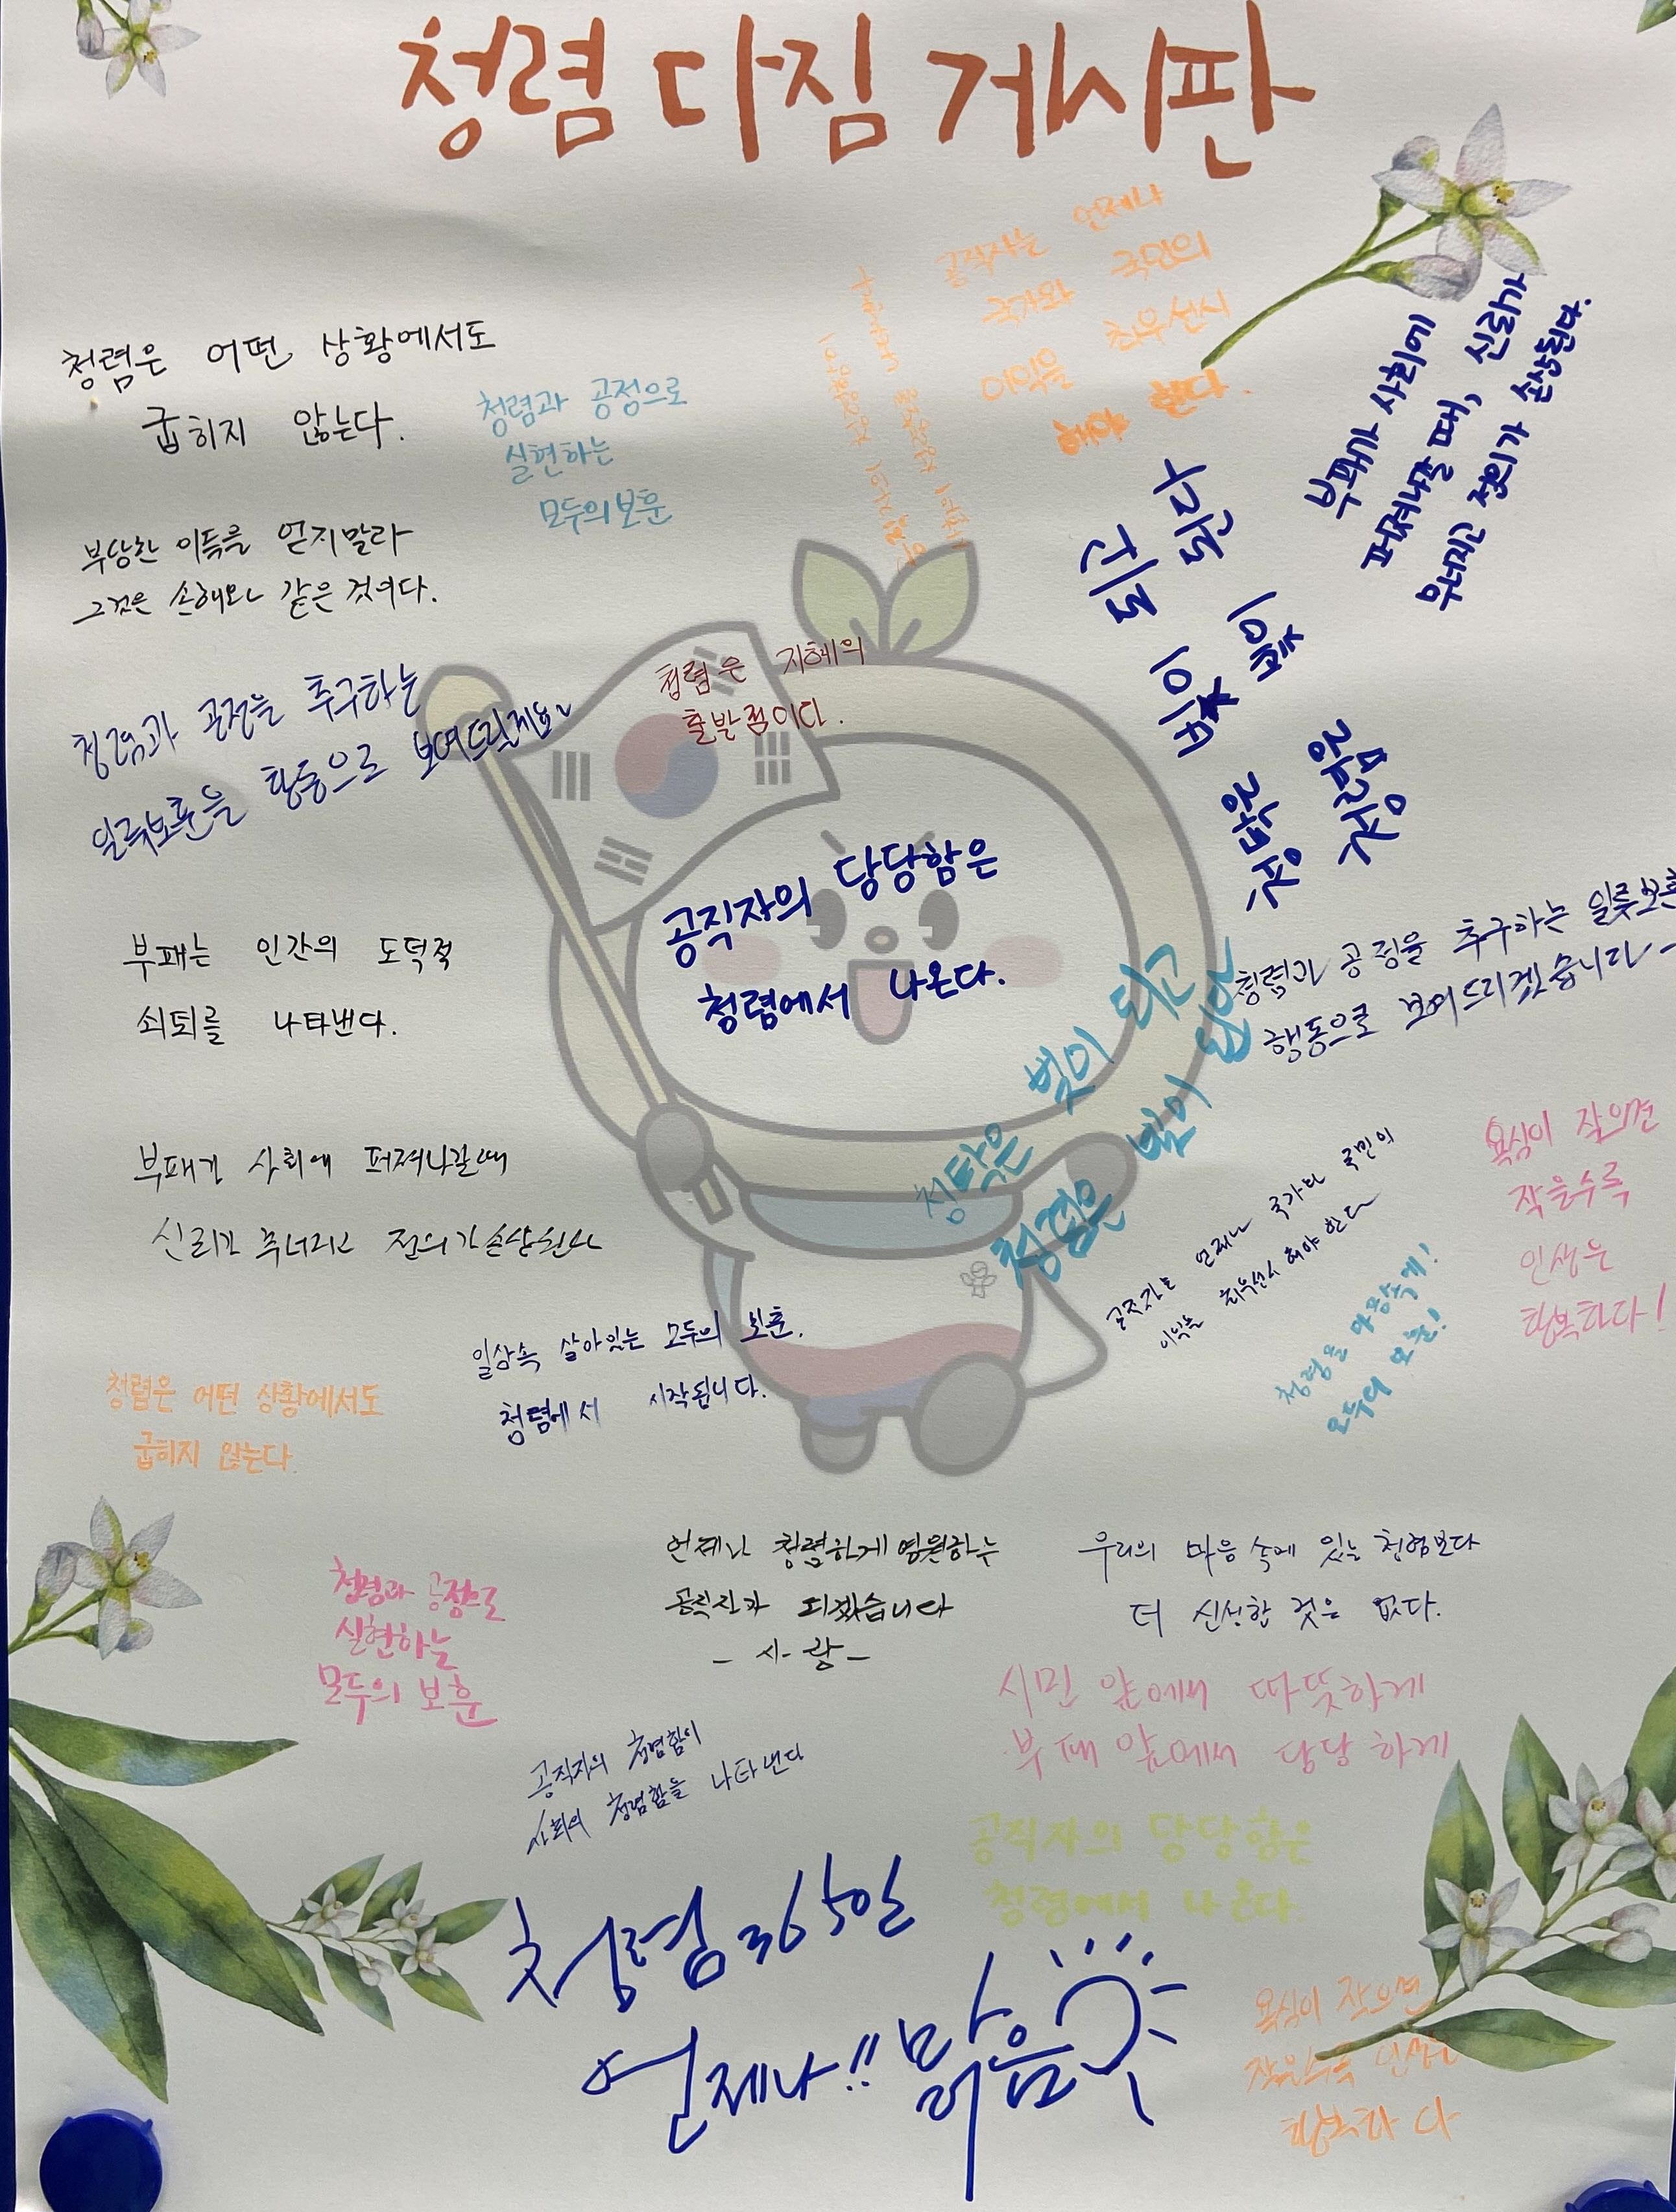 청렴 다짐 게시판
공직자는 언제나
국가와 국민의
이익을 최우선시
해야 한다.
청렴은 어떤 상황에서도
굽히지 않는다.
청렴과 공정으로
실현하는
모두의 보훈
부당한 이득을 얻지말라
그것은 손해와 같은 것이다.
청렴과 공정을 추구하는
일류보훈을 행동으로 보여드릴게요~
청렴은 지혜의
출발점이다.
공직자의 당당함은
청렴에서 나온다.
부패는 인간의 도덕적
쇠퇴를 나타낸다.
청렴과 공정을 추구하는 일류보훈
행동으로 보여드리겠습니다~
청탁은 빚이 되고
청렴은 빛이
부패가 사회에 퍼져나갈때
신뢰가 무너지고 정의가 손상된다
공직자는 언제나 국가와 국민의
이익을 최우선시 해야 한다
욕심이 작으면
작을수록
인생은
행복하다!
청렴을 마음속에!
모두의 보훈!
일상속 살아있는 모두의 보훈.
청렴에서 시작됩니다.
청렴은 어떤 상황에서도
굽히지 않는다.
언제나 청렴하게 영원하는
공직자가 되겠습니다
- 사랑 -
우리의 마음속에 있는 청렴보다
더 신성한 것은 없다.
청렴과 공정으로
실현하는
모두의 보훈
시민 앞에서 따뜻하게
부패 앞에서 당당하게
공직자의 청렴함이
사회의 청렴함을 나타낸다
공직자의 당당함은
청렴에서 나온다.
청렴 365일
언제나!! 맑음
욕심이 작으면
작을수록 인생은
행복하다